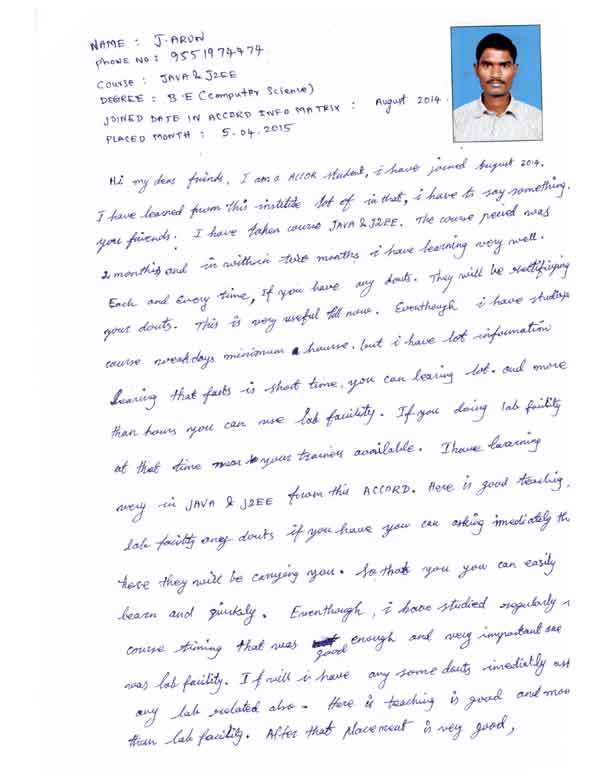 NAME : J. ARUN
PHONE NO : 9551974474.
Course : JAVA & J2EE
DEGREE : B.E (Computer Science)
JOINED DATE IN ACCORD INFO MATRIX : August 2014.
PLACED MONTH : 5.04.2015
Hi my dear friends, I am a ACCOR student, i have joined August 2014.
I have learned from this institute lot of in that, i have to say something.
you friends. I have taken course JAVA & J2EE. The course period was
2 months and in within two months i have learning very well.
Each and Every time, If you have any douts. They will be rectifiying
your douts. This is very useful till now. Eventhough i have
course weekdays minimum hourse. but i have lot information
learing that facts is short time. you can learing lot. and more
than hours you can use lab facility. If you doing lab facility
at that time near your trainers available. I have learning
very in JAVA & J2EE from this ACCORD. Here is good teaching,
lab facility any douts if you have you can asking imediately
here they will be carrying you. So that you you can easily
learn and quickly. Eventhough, i have studied regularly
course timing that was good enough and very important one
was lab facility. If will i have any some douts imediatly
any lab related also. Here is teaching is good and
than lab facility. After that placement is very good,